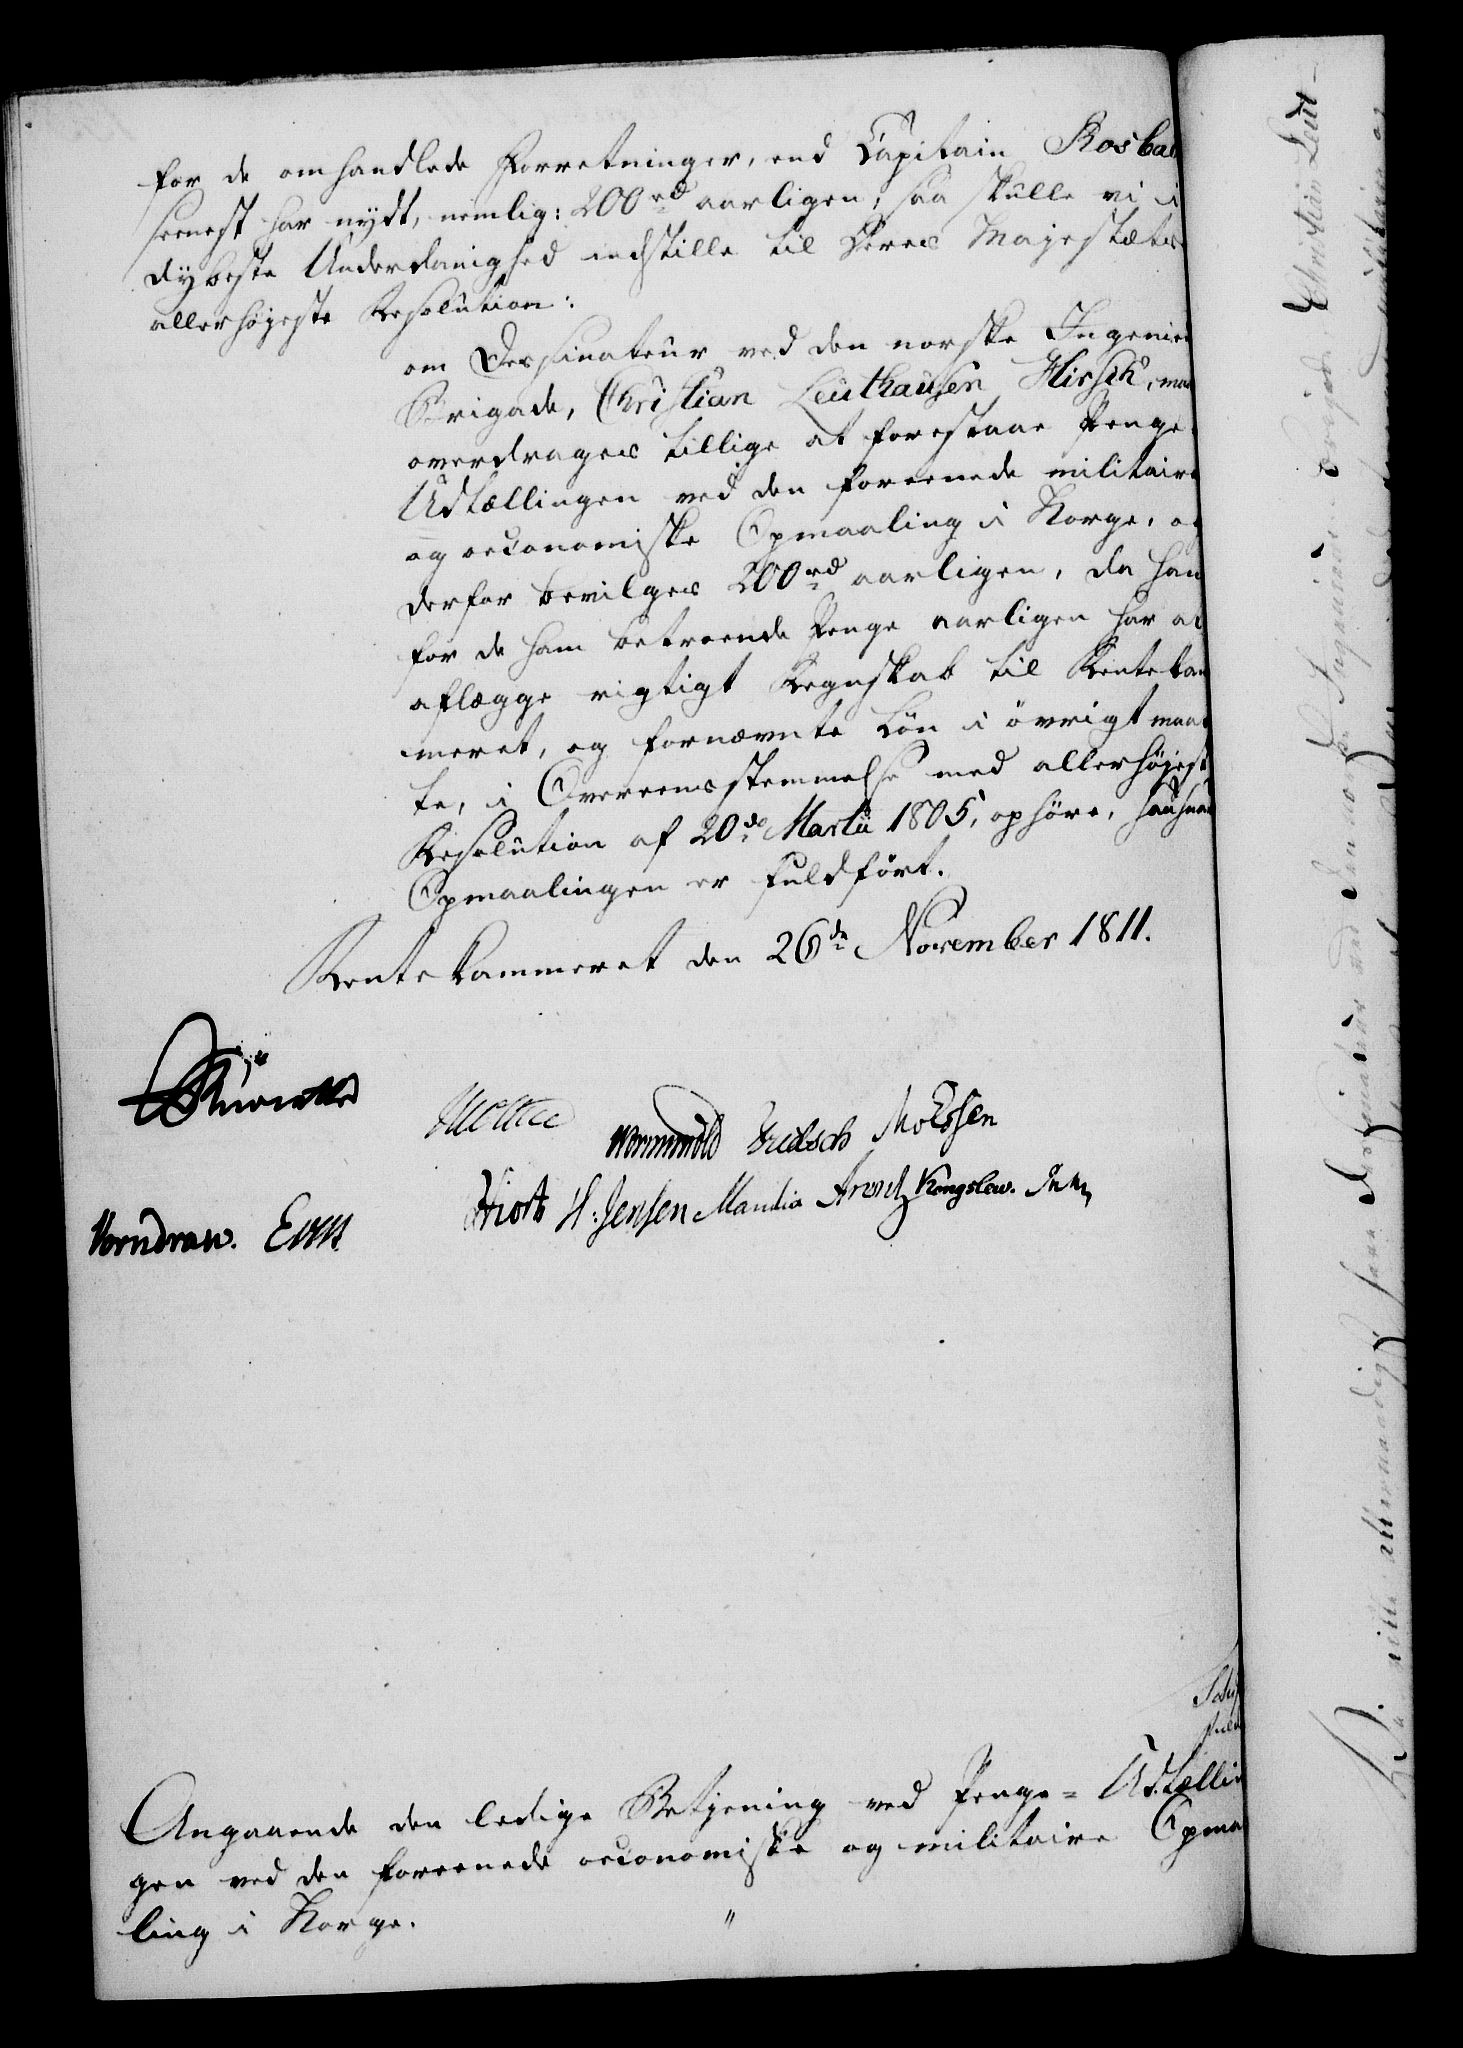 for de omhandlede Forretninger, end Capitain Rosba
seenest har nydt, nemlig: 200 rd aarligen; saa skulle vi i
dybeste Underdanighed indstille til Deres Majestæts
allerhøjeste Resolution:
om Dessinateur ved den norske Ingenieu
Brigade, Christian Leuthausen Hirsch, maa
overdrages tillige at forestaae Penge-
Udtællingen ved den foreenede militaire
og oeconomiske Opmaaling i Norge, og
derfor bevilges 200 rd aarligen, da han
for de ham betroende Penge aarligen har at
aflægge rigtigt Regnskab til Rentekam
meret, og fornævnte Løn i øvrigt maat
te, i Overeensstemmelse med allerhøjest
Resolution af 20de Martii 1805, ophøre, saasnar
Opmaalingen er fuldført.
Rentekammeret den 26de November 1811.
Moltke
Wormskiold Fridsch Moessen
Hiort H: Jensen Manthis Arentz Kongslew.
Vorndran. Even
Angaaende den ledige Betjening ved Penge= Udtællin
gen ved den foreenede oeconomiske og militaire Opma
ling i Norge. "
Christian Leut-
Vi ville allernaadigst have Dessinateur ved den norske Ingenieur Brigade